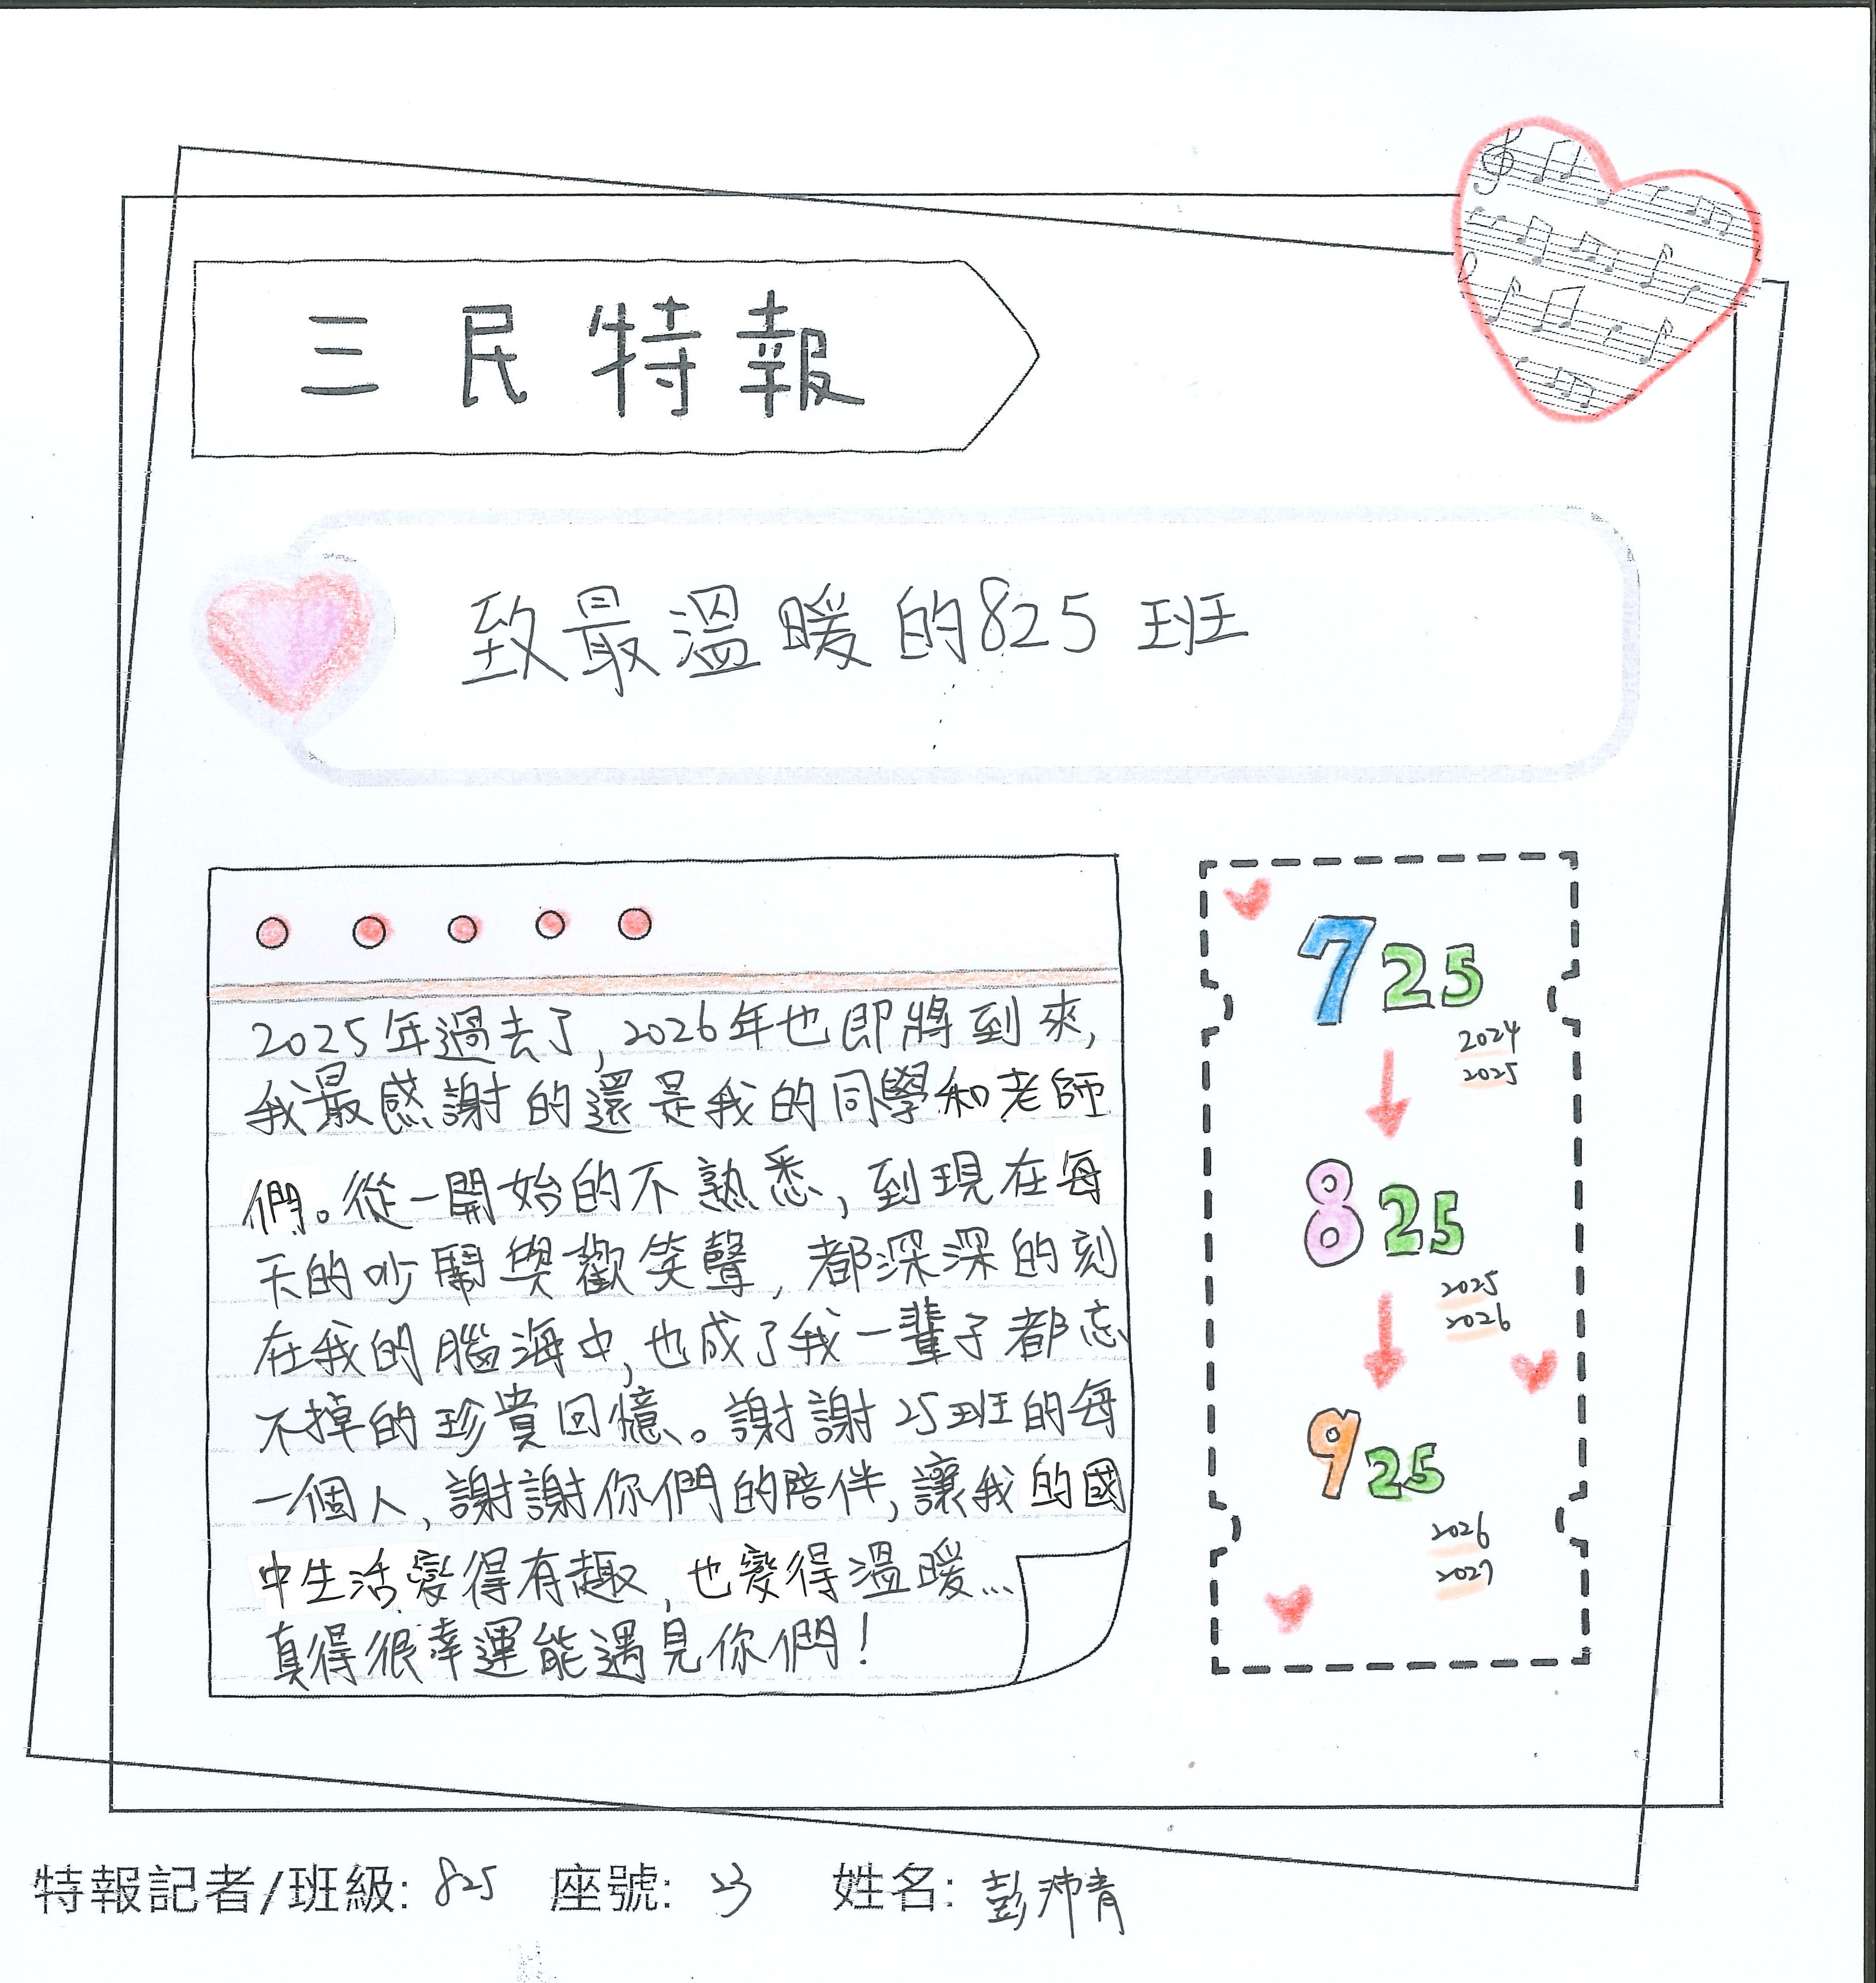 三民特報
致最溫暖的825班
2025年過去了,2026年也即將到來,
我最感謝的還是我的同學和老師
們。從一開始的不熟悉,到現在每
天的吵鬧與歡笑聲,都深深的刻
在我的腦海中,也成了我一輩子都忘
不掉的珍貴回憶。謝謝25班的每
一個人,謝謝你們的陪伴,讓我的國
中生活變得有趣,也變得溫暖...
真得很幸運能遇見你們!
725
2024
2025
825
2025
2026
925
2026
2027
特報記者/班級: 825 座號: 23 姓名: 彭沛青